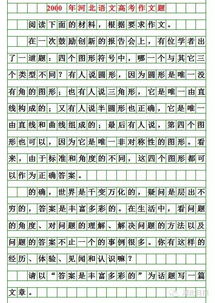 2000 年河北语文高考作文题
阅读下面的材料，根据要求作文。
在一次鼓励创新的报告会上，有位学者出
了一道题：四个图形符号中，哪一个与其它三
个类型不同？有人说圆形，因为圆形是唯一没
有角的图形；也有人说三角形，它是唯一由直
线构成的；又有人说半圆形也正确，它是唯一
由直线和曲线组成的；最后有人说，第四个图
形也可以，因为它是唯一非对称性的图形。看
来，由于标准和角度的不同，这四个图形都可
以作为正确答案。
的确，世界是千变万化的，疑问是层出不
穷的，答案是丰富多彩的。在生活中，看问题
的角度、对问题的理解、解决问题的方法以及
问题的答案不止一个的事例很多。你有这样的
经历、体验、见闻和认识嘛？
请以“答案是丰富多彩的”为话题写一篇
文章。